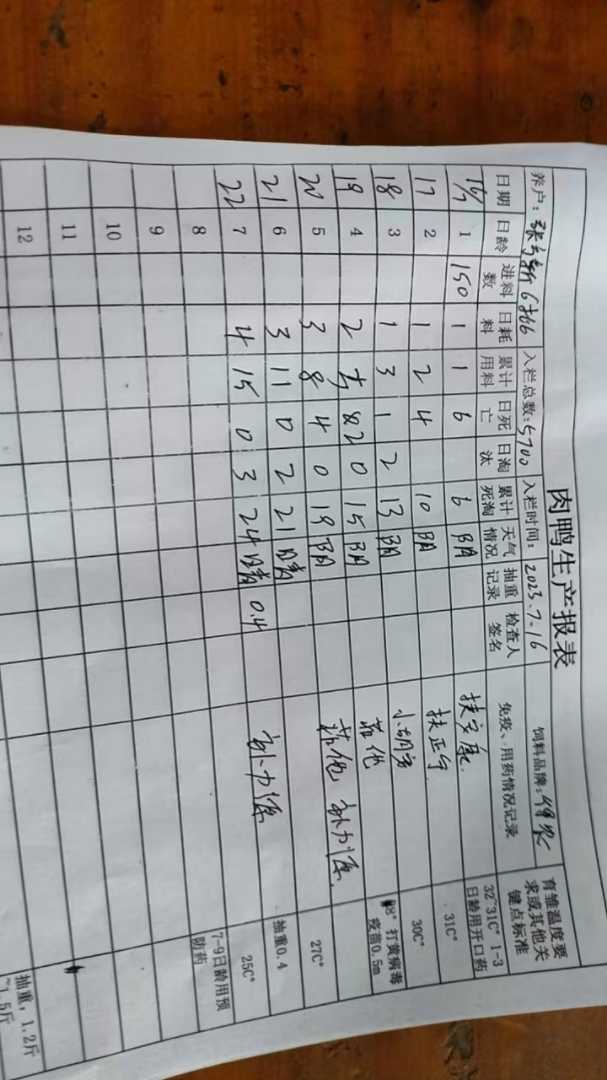 肉鸭生产报表
养户: 入栏总数:5700 入栏时间: 2023.7-16 饲料品牌:
日期 日龄 进料数 日耗料 累计用料 日死亡 日淘汰 累计死淘 天气情况 抽重记录 检查人签名 免疫、用药情况记录 育雏温度要求或其他关键点标准
16/7 1 150 1 1 6 6 阴 32~31C° 1-3日龄用开口药
17 2 1 2 4 10 阴 扶正 31C°
18 3 1 3 1 2 13 阴 30C°
19 4 2 5 2 0 15 阴 8° 打黄病毒疫苗0.5m
20 5 3 8 4 0 19 阴 27C°
21 6 3 11 0 2 21 晴 抽重0.4
22 7 4 15 0 3 24 晴 0.4 25C°
8 7-9日龄用预防药
9
10
11
12 抽重,1.2斤~1.5斤